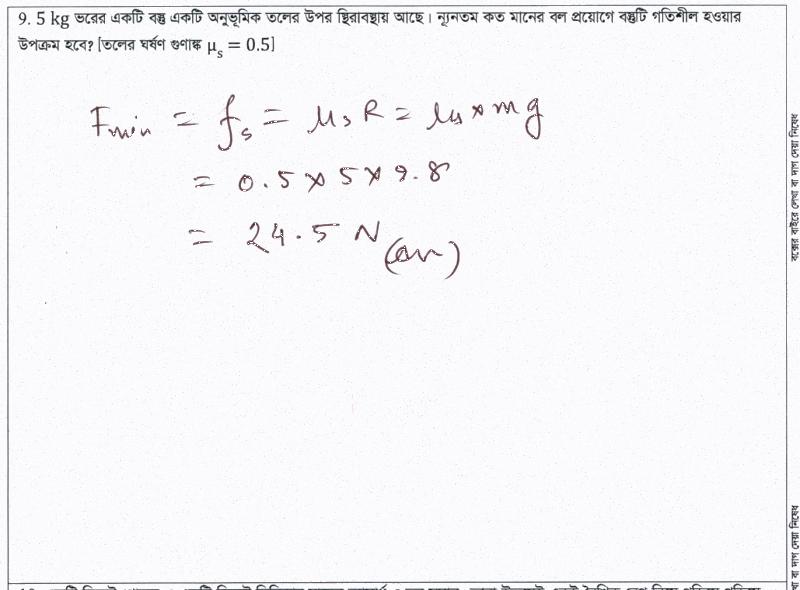 9. 5 kg ভরের একটি বস্তু একটি অনুভূমিক তলের উপর স্থিরাবস্থায় আছে। ন্যূনতম কত মানের বল প্রয়োগে বস্তুটি গতিশীল হওয়ার
উপক্রম হবে? [তলের ঘর্ষণ গুণাঙ্ক μₛ = 0.5]
Fmin = fs = μsR = μs × mg
= 0.5 × 5 × 9.8
= 24.5 N (Ans)
বক্সের বাইরে লেখা বা দাগ দেয়া নিষেধ
খা বা দাগ দেয়া নিষেধ